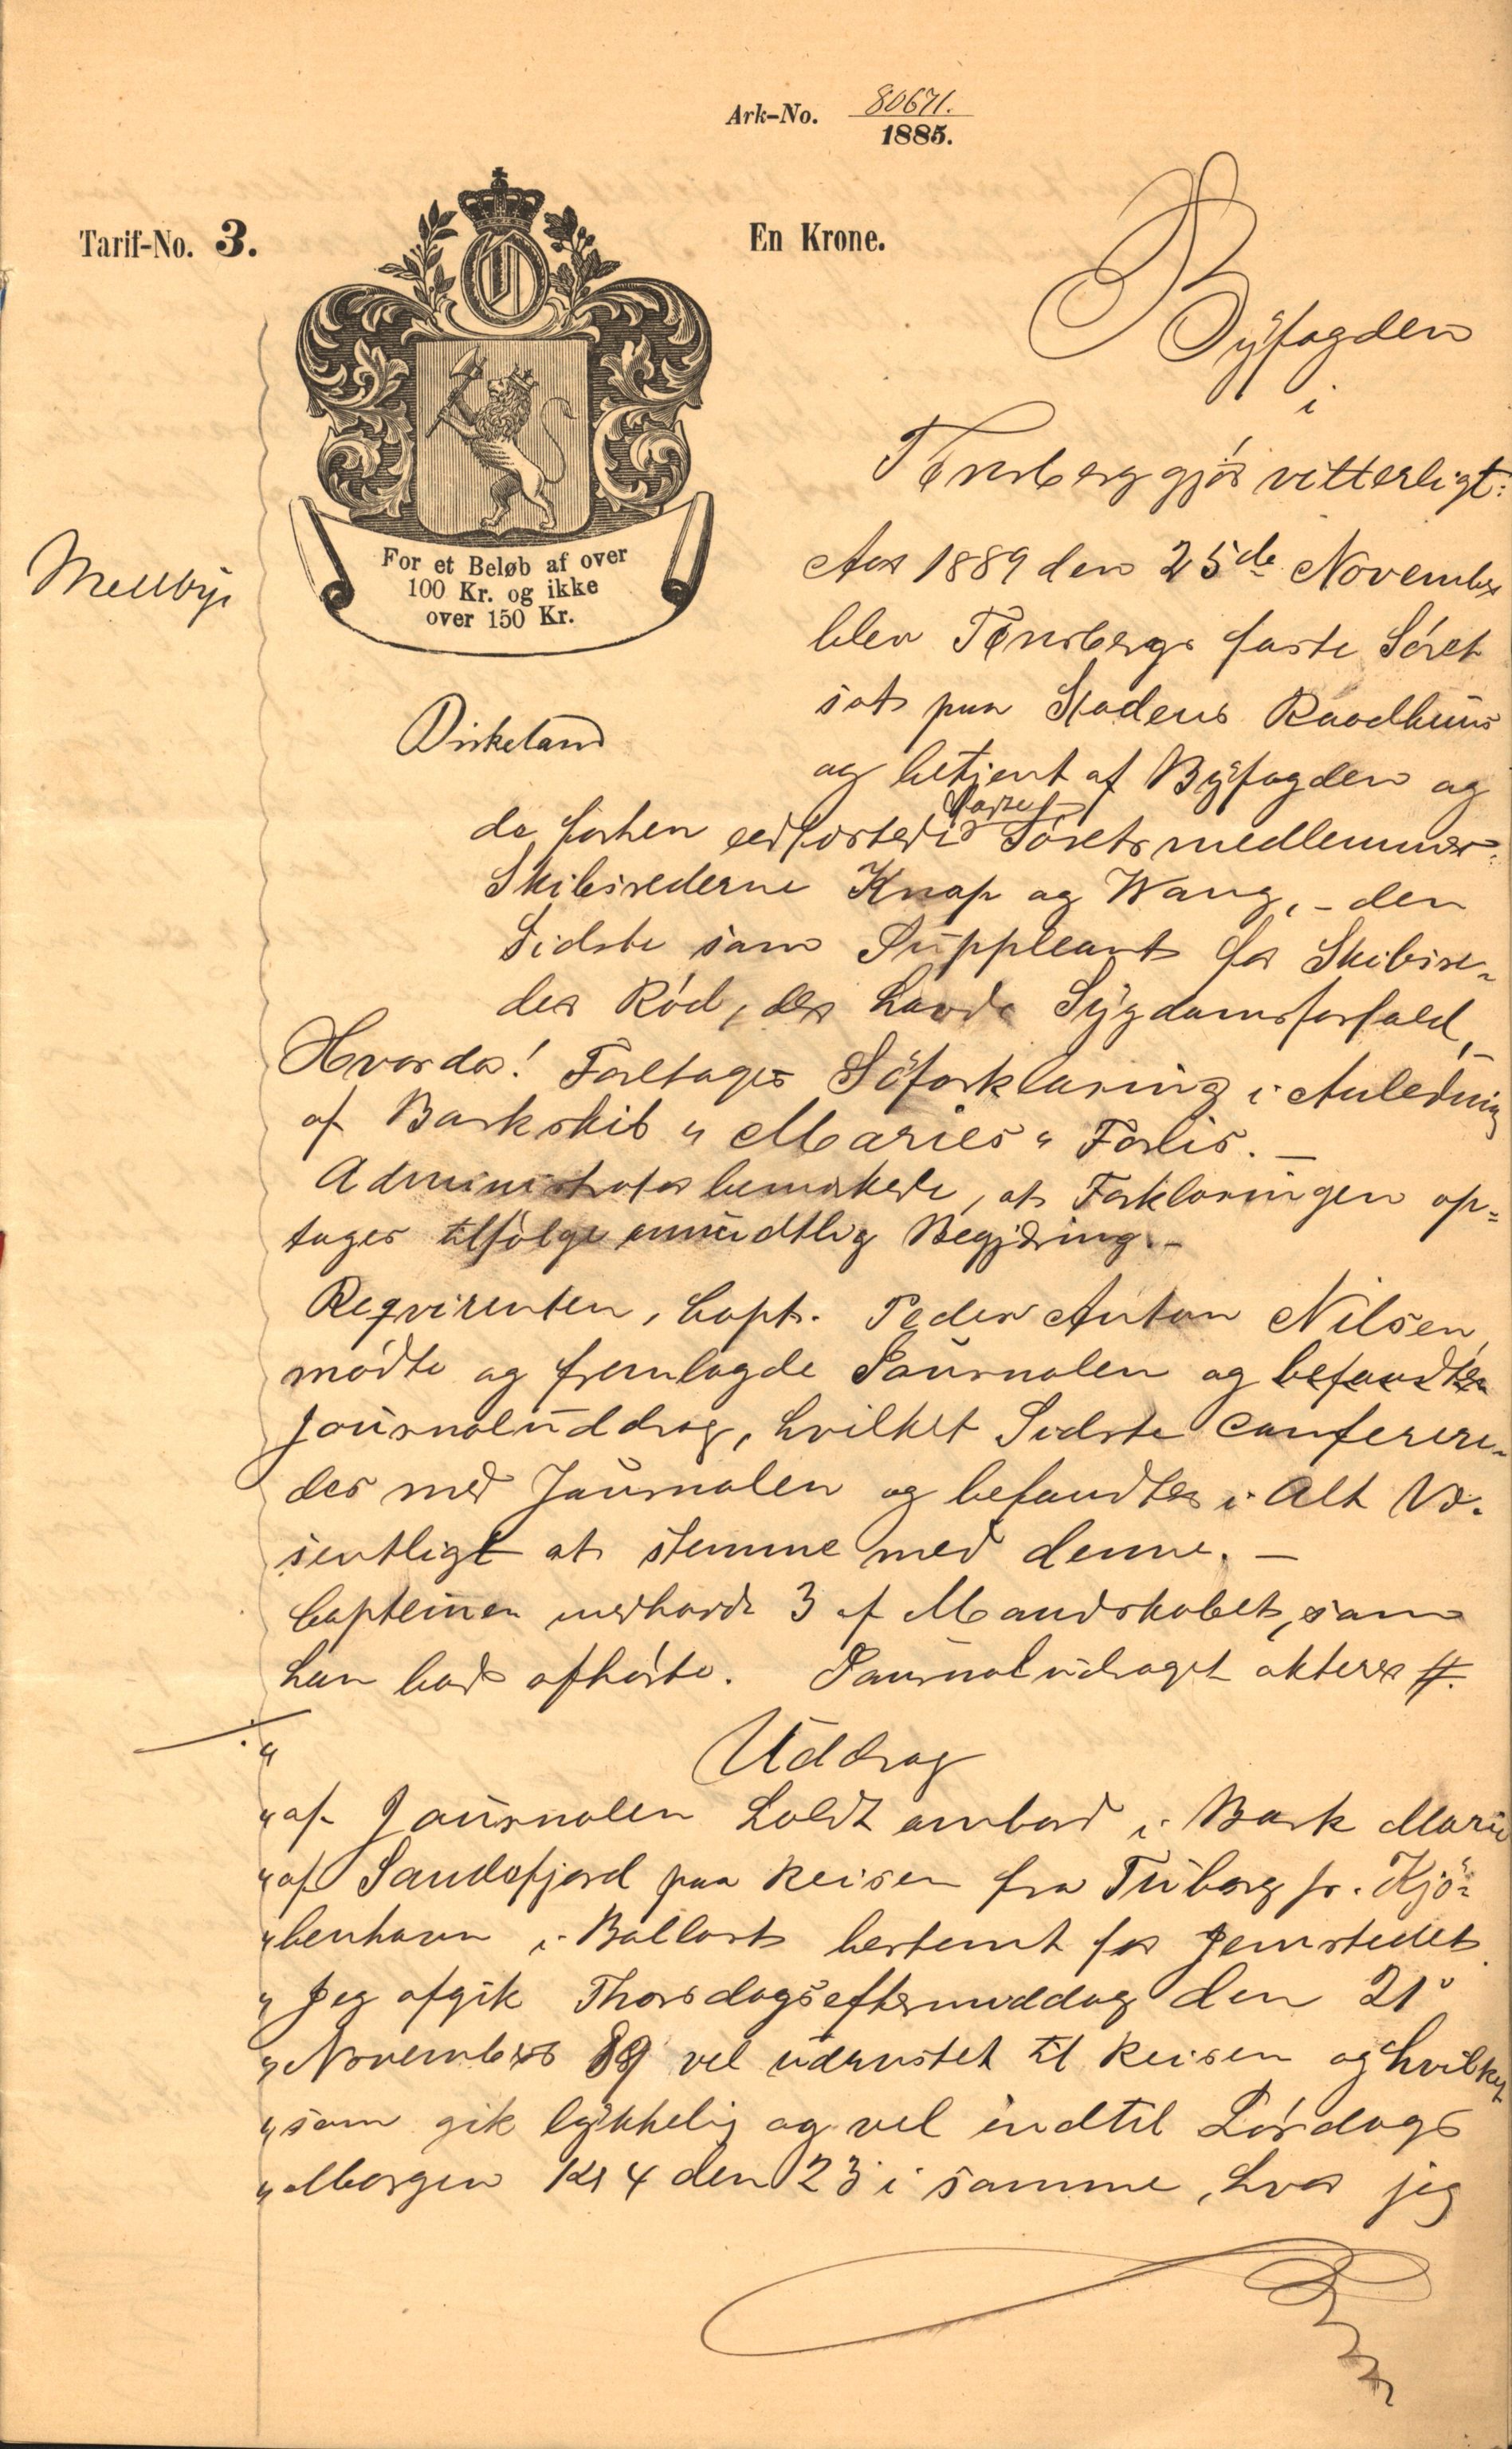 Ark-No. 80671.
1885.
Tarif-No. 3.
En Krone.
For et Beløb af over
100 Kr. og ikke
over 150 Kr.
Mellbye
Birkeland
Byfogden
i
Tønsberg gjør vitterligt:
Aar 1889 den 25de November
blev Tønsbergs faste Söret
sat paa Stadens Raadhuus
og betjent af Byfogden og
de forhen eedfæstede faste Söretsmedlemmer:
Skibsrederne Knap og Wang, - den
Sidste som Suppleant for Skibsre-
der Röd, der havde Sygdomsforfald, -
Hvorda! Foretages Söforklaring i Anledning
af Barkskib "Maries" Forlis. -
Administrator bemærkede, at Forklaringen op=
tages tilfölge mundtlig Begjæring. -
Reqvirenten, Capt. Peder Anton Nilsen
mödte og fremlagde Journalen og befandtes
Journaluddrag, hvilket Sidste confere-
des med Journalen og befandtes i Alt Væ-
sentligt at stemme med denne. -
Capteinen medhavde 3 af Mandskabet, som
han bad afhörte. Journaludraget akteres #.
" Uddrag
" af Journalen holdt ombord i Bark Marie
" af Sandefjord paa Reisen fra Tuborg pr. Kjö=
" benhavn i Ballast bestemt for Hjemstedet.
" Jeg afgik Thorsdagseftermiddag den 21'
" November 89 vel udrustet til Reisen og hvilken
" som gik lykkelig og vel indtil Lördags
" Morgen Kl 4 den 23' i samme, hvor jeg